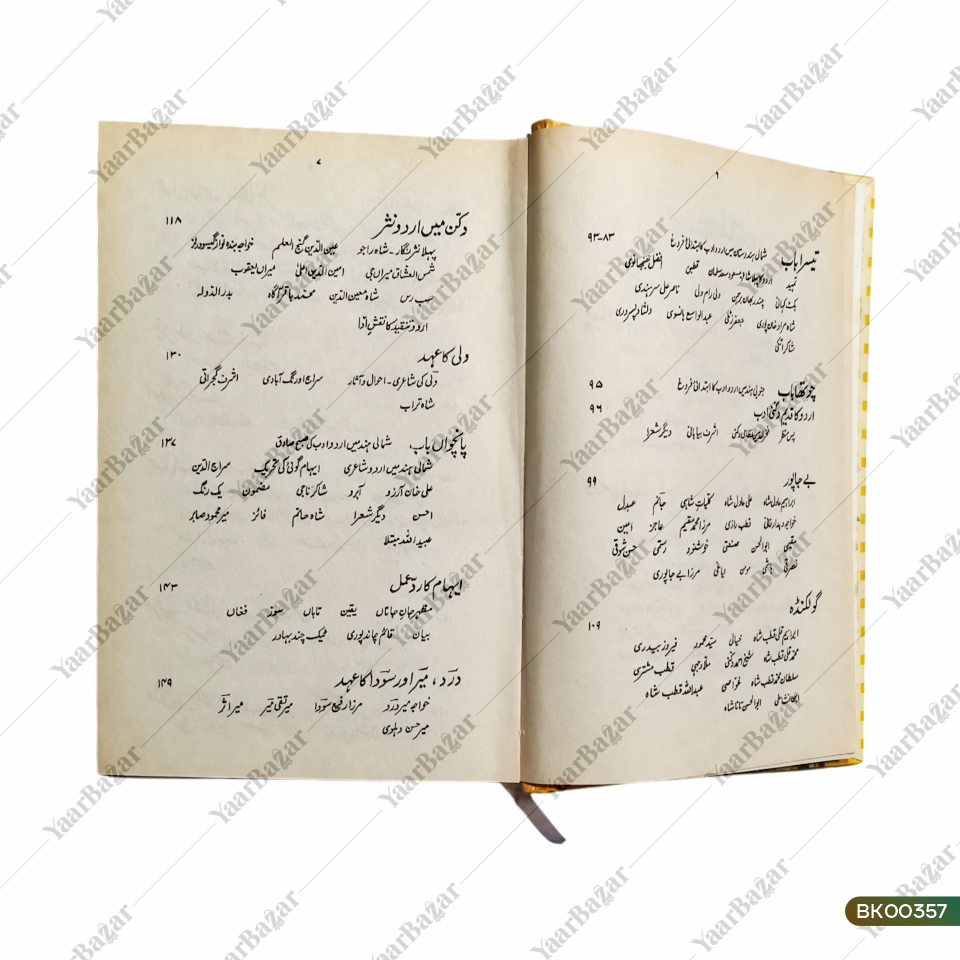 ۶
تیسرا باب شمالی ہندوستان میں اردو ادب کا ابتدائی فروغ ۸۳-۹۳
تمہید اردو کا پہلا شاعر مسعود سعد سلمان قطبن افضل جھنجھانوی
بکٹ کہانی چندر بھان برہمن ولی رام ولی ناصر علی سرہندی
شاہ مراد خان پوری جعفر زٹلی عبدالواسع ہانسوی دلشاد پسروری
شاکر اٹکی
چوتھا باب جنوبی ہند میں اردو ادب کا ابتدائی فروغ ۹۵
اردو کا قدیم دکنی ادب ۹۶
پس منظر فخر الدین نظامی دکنی اشرف بیابانی دیگر شعرا
بے جاپور ۹۹
ابراہیم عادل شاہ علی عادل شاہ کلیات شاہی جانم عبدل
خواجہ دیدار فانی قطب رازی مرزا محمد مقیم عاجز امین
مقیمی ابوالحسن صنعتی خوشنود رستمی حسن شوقی
نصرتی ہاشمی مومن ایاغی مرزا بے جاپوری
گولکنڈہ ۱۰۹
ابراہیم قلی قطب شاہ خیالی سید محمود فیروز بیدری
محمد قلی قطب شاہ شیخ احمد دکنی ملا وجہی قطب مشتری
سلطان محمد قطب شاہ غواصی عبداللہ قطب شاہ
ابن نشاطی ابوالحسن تانا شاہ
۷
دکن میں اردو نثر ۱۱۸
پہلا نثر نگار۔ شاہ راجو عین الدین گنج العلم خواجہ بندہ نواز گیسو دراز
شمس العشاق میراں جی امین الدین اعلیٰ میراں یعقوب
سب رس شاہ معین الدین محمد باقر آگاہ بدر الدولہ
اردو تنقید کا نقش اول
ولی کا عہد ۱۳۰
ولی کی شاعری۔ احوال و آثار سراج اورنگ آبادی اشرف گجراتی
شاہ تراب
پانچواں باب شمالی ہند میں اردو ادب کی صبح صادق ۱۳۷
شمالی ہند میں اردو شاعری ایہام گوئی کی تحریک سراج الدین
علی خان آرزو آبرو شاکر ناجی مضمون یک رنگ
احسن دیگر شعرا شاہ حاتم فائز میر محمود صابر
عبید اللہ مبتلا
ایہام کا رد عمل ۱۴۳
مظہر جان جاناں یقین تاباں سوز فغاں
بیان قائم چاند پوری ٹیک چند بہادر
درد، میر اور سودا کا عہد ۱۴۹
خواجہ میر درد مرزا رفیع سودا میر تقی میر میر اثر
میر حسن دہلوی
BK00357
YaarBazar